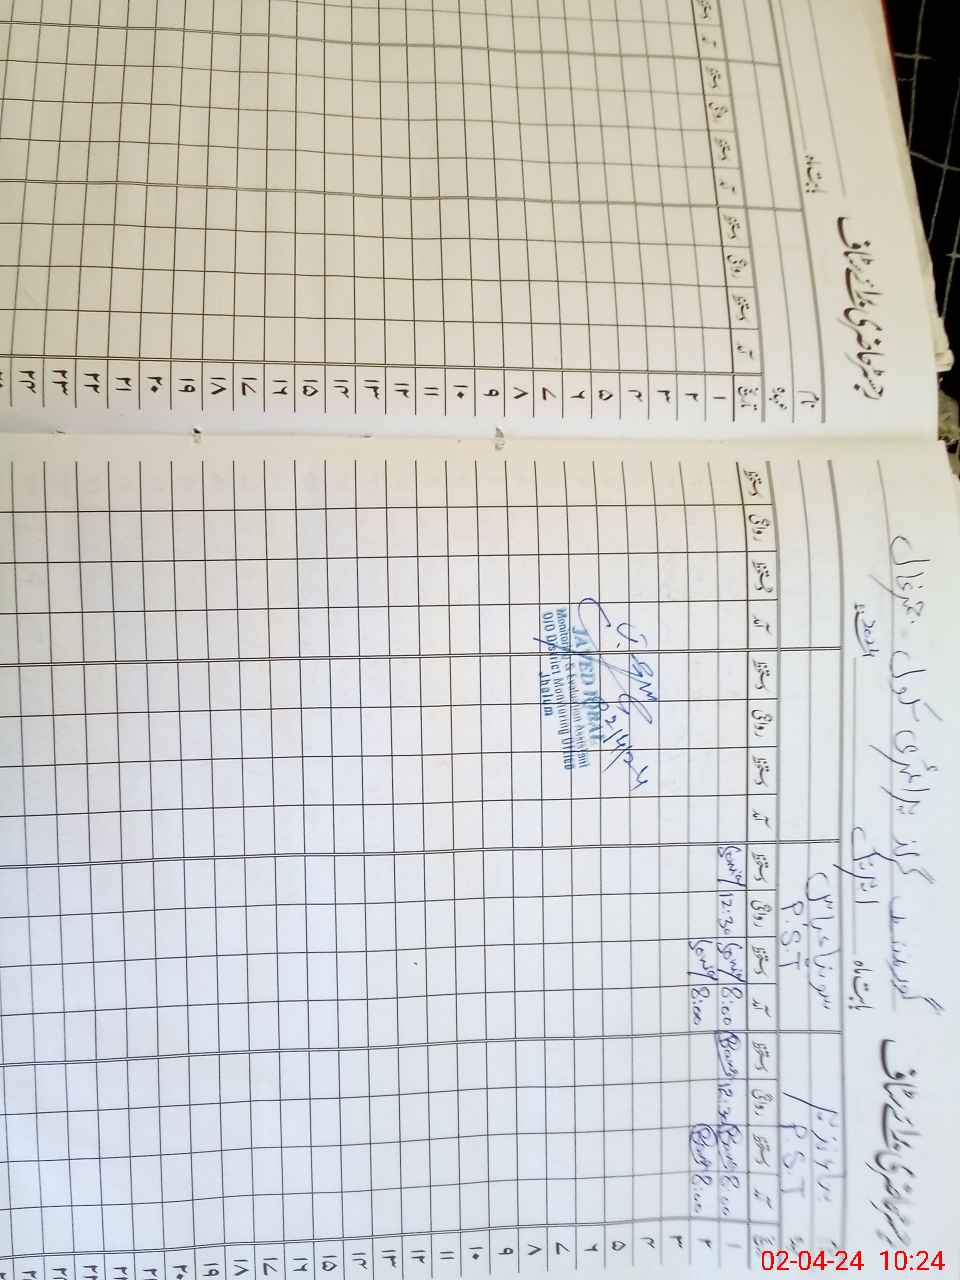 رجسٹر حاضری برائے سٹاف
گورنمنٹ گرلز پرائمری سکول
بابت ماہ اپریل 2024ء
نام
عہدہ
P.S.T
P.S.T
تاریخ آمد دستخط روانگی دستخط آمد دستخط روانگی دستخط آمد دستخط روانگی دستخط آمد دستخط روانگی دستخط
۱ 8:00 12:30 8:00 Sonia 12:30 Sonia
۲ 8:00 8:00 Sonia
۳
۴
۵
۶
۷
۸
۹
۱۰
۱۱
۱۲
۱۳
۱۴
۱۵
۱۶
۱۷
۱۸
۱۹
۲۰
۲۱
۲۲
۲۳
2/4/24
JAVED IQBAL
Monitoring & Evaluation Assistant
O/O District Monitoring Office
Jhelum
رجسٹر حاضری برائے سٹاف
بابت ماہ
نام
عہدہ
تاریخ آمد دستخط روانگی دستخط آمد دستخط روانگی دستخط آمد دستخط
۱
۲
۳
۴
۵
۶
۷
۸
۹
۱۰
۱۱
۱۲
۱۳
۱۴
۱۵
۱۶
۱۷
۱۸
۱۹
۲۰
۲۱
۲۲
۲۳
۲۴
02-04-24 10:24